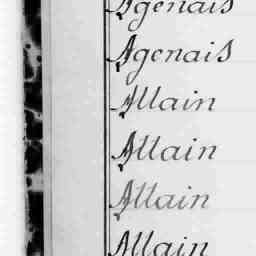 Agenais
Agenais
Allain
Allain
Allain
Allain